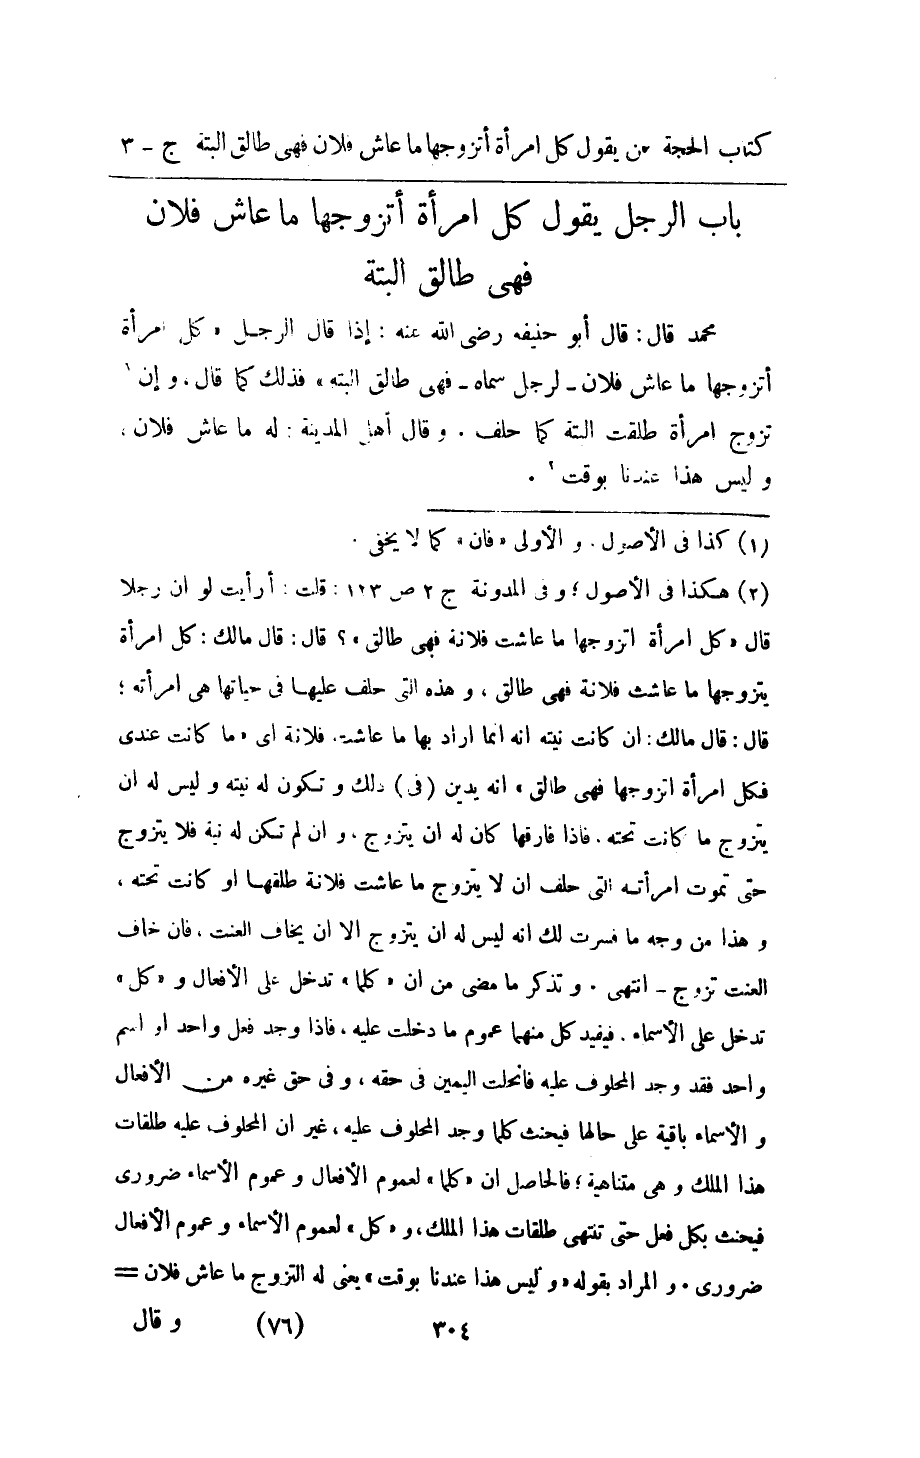 كتاب الحجة من يقول كل امرأة أتزوجها ما عاش فلان فهى طالق البتة ج - ٣
باب الرجل يقول كل امرأة أتزوجها ما عاش فلان
فهى طالق البتة
محمد قال : قال أبو حنيفه رضى الله عنه : إذا قال الرجل « كل امرأة
أتزوجها ما عاش فلان - لرجل سماه - فهى طالق البته » فذلك كما قال ، و إن ١
تزوج امرأة طلقت البتة كما حلف . و قال أهل المدينة : له ما عاش فلان ،
و ليس هذا عندنا بوقت ٢ .
(١) كذا فى الأصول . و الأولى « فان » كما لا يخفى .
(٢) هكذا فى الأصول ؛ و فى المدونة ج ٢ ص ١٢٣ : قلت : أرأيت لو ان رجلا
قال « كل امرأة اتزوجها ما عاشت فلانة فهى طالق » ؟ قال : قال مالك : كل امرأة
يتزوجها ما عاشت فلانة فهى طالق ، و هذه التى حلف عليها فى حياتها هى امرأته ؛
قال : قال مالك : ان كانت نيته انه انما اراد بها ما عاشت فلانة اى « ما كانت عندى
فكل امرأة اتزوجها فهى طالق » انه يدين (فى) ذلك و تكون له نيته و ليس له ان
يتزوج ما كانت تحته . فاذا فارقها كان له ان يتزوج ، و ان لم تكن له نية فلا يتزوج
حتى تموت امرأته التى حلف ان لا يتزوج ما عاشت فلانة طلقها او كانت تحته ،
و هذا من وجه ما فسرت لك انه ليس له ان يتزوج الا ان يخاف العنت ، فان خاف
العنت تزوج - انتهى . و تذكر ما مضى من ان « كلما » تدخل على الأفعال و « كل »
تدخل على الأسماء . فيفيد كل منهما عموم ما دخلت عليه ، فاذا وجد فعل واحد او اسم
واحد فقد وجد المحلوف عليه فانحلت اليمين فى حقه ، و فى حق غيره من الأفعال
و الأسماء باقية على حالها فيحنث كلما وجد المحلوف عليه ، غير ان المحلوف عليه طلقات
هذا الملك و هى متناهية ؛ فالحاصل ان « كلما » لعموم الأفعال و عموم الأسماء ضرورى
فيحنث بكل فعل حتى تنتهى طلقات هذا الملك ، و « كل » لعموم الأسماء و عموم الأفعال
ضرورى . و المراد بقوله « و ليس هذا عندنا بوقت » يعنى له التزوج ما عاش فلان =
٣٠٤ (٧٦) و قال